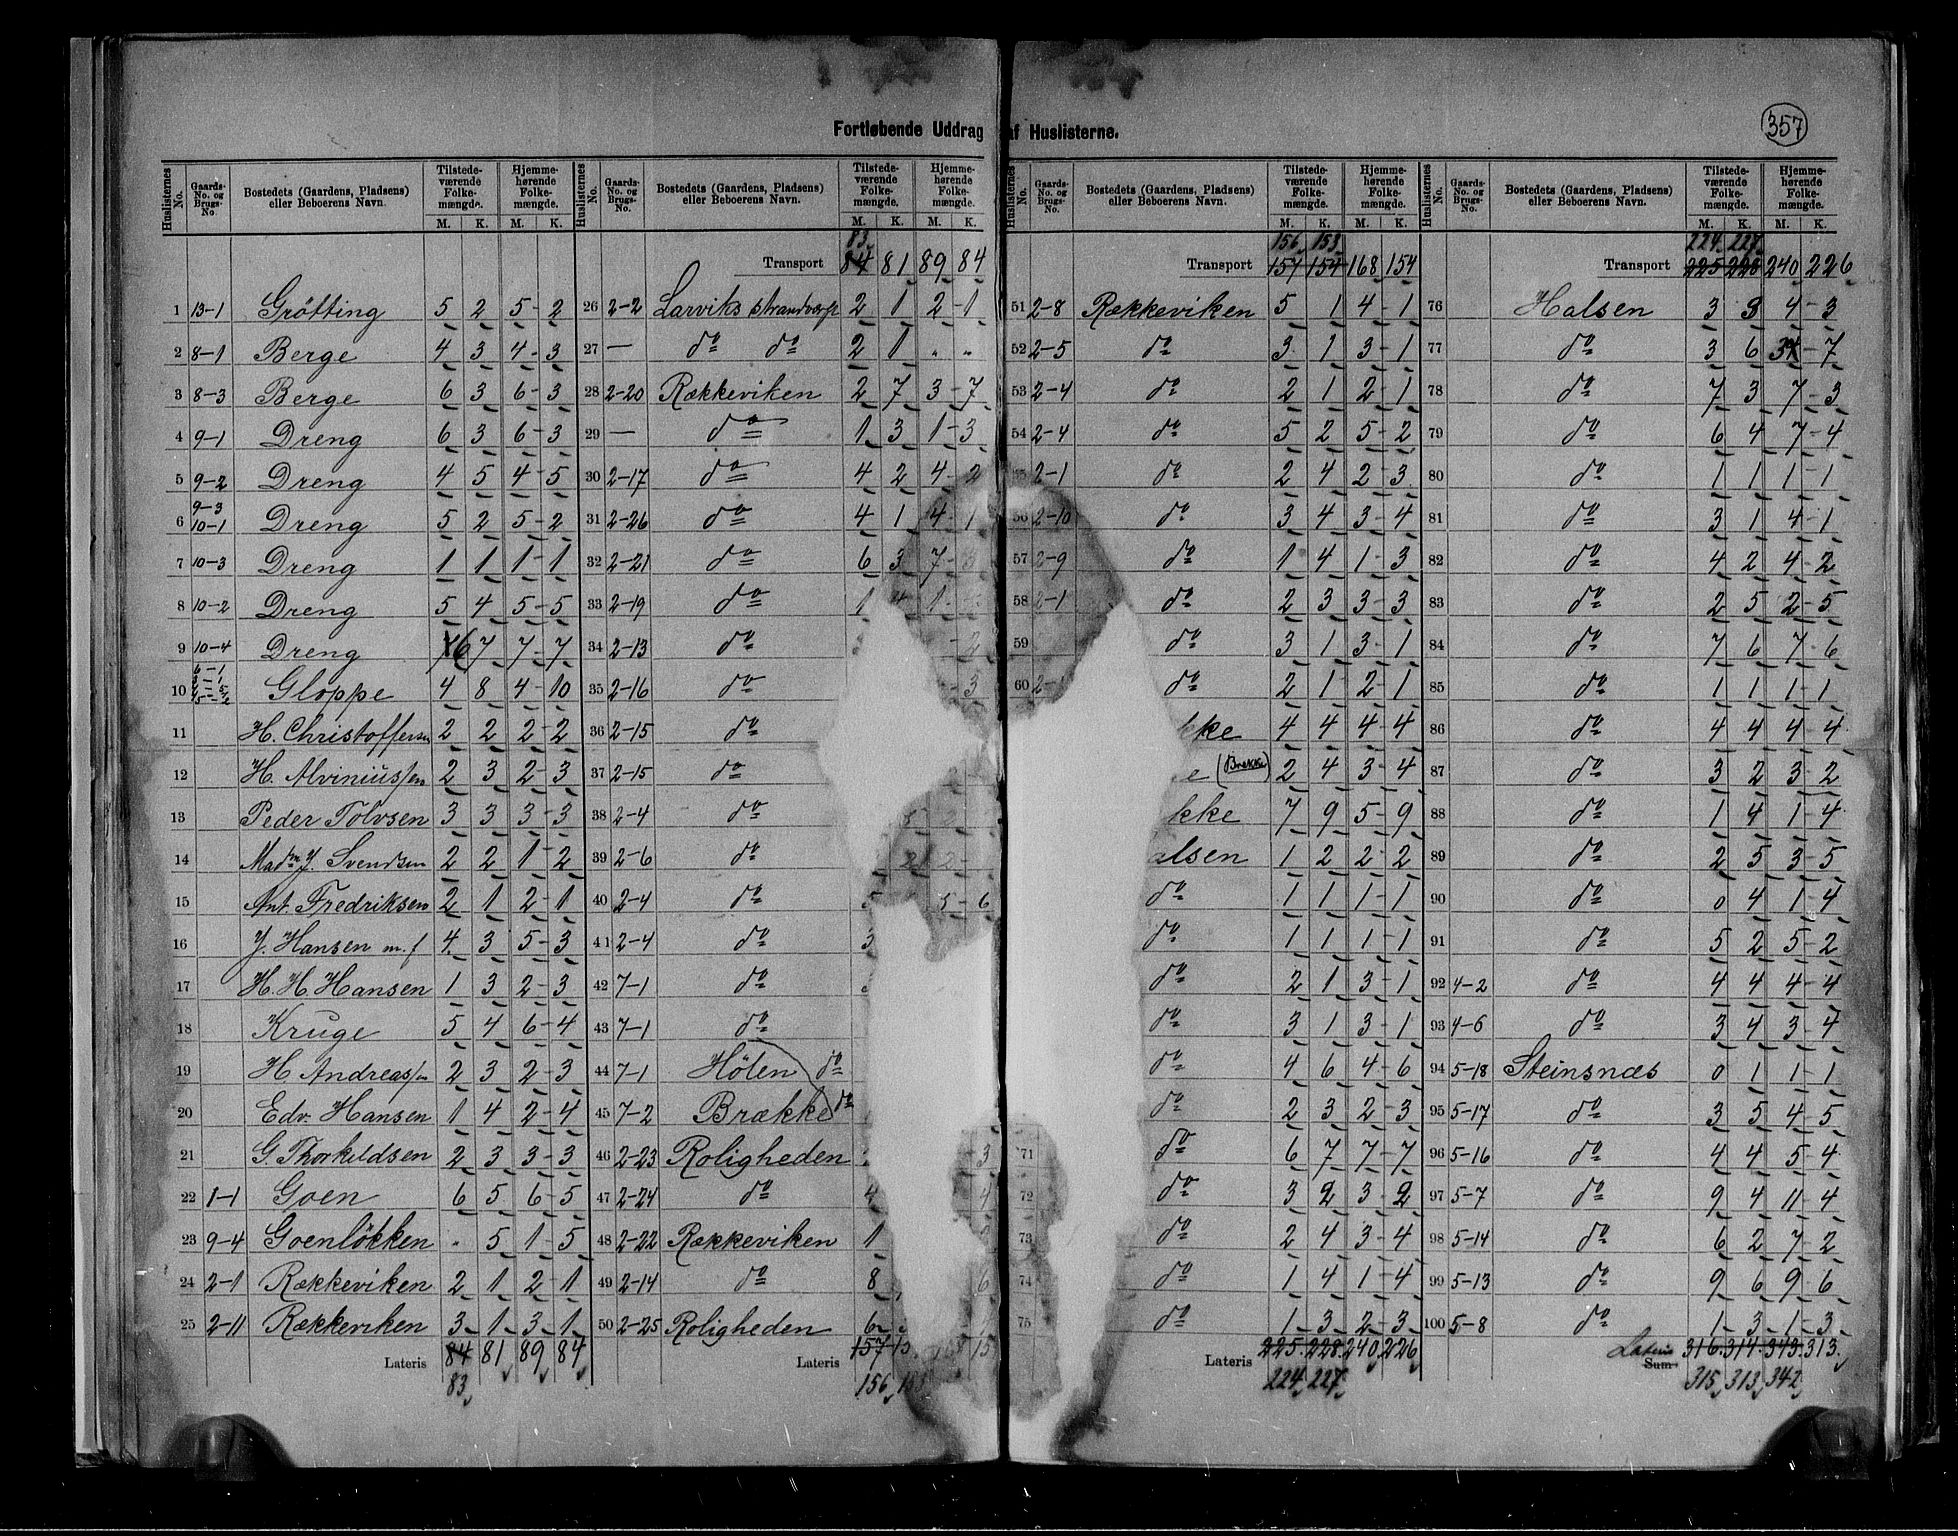 Fortløbende Uddrag af Huslisterne.
357
Huslisternes No. | Gaards-No. og Brugs-No. | Bostedets (Gaardens, Pladsens) eller Beboerens Navn. | Tilstedeværende Folkemængde. M. K. | Hjemmehørende Folkemængde. M. K.
1 13-1 Grötting 5 2 5-2
2 8-1 Berge 4 3 4-3
3 8-3 Berge 6 3 6-3
4 9-1 Dreng 6 3 6-3
5 9-2 Dreng 4 5 4-5
6 9-3 10-1 Dreng 5 2 5-2
7 10-3 Dreng 1 1 1-1
8 10-2 Dreng 5 4 5-5
9 10-4 Dreng 6 7 7-7
10 Gloppe 4 8 4-10
11 H. Christoffersen 2 2 2-2
12 H. Alviniussen 2 3 2-3
13 Peder Tolvsen 3 3 3-3
14 Madm J. Svendsen 2 2 1-2
15 Ant. Fredriksen 2 1 2-1
16 J. Hansen m.f 4 3 5-3
17 H. H. Hansen 1 3 2-3
18 Kruge 5 4 6-4
19 H. Andreassen 2 3 2-3
20 Edv. Hansen 1 4 2-4
21 G. Thorkildsen 2 3 3-3
22 1-1 Goen 6 5 6-5
23 9-4 Goenløkken - 5 1-5
24 2-1 Rækkeviken 2 1 2-1
25 2-11 Rækkeviken 3 1 3-1
Lateris 84 81 89 84
83
83
Transport 84 81 89 84
26 2-2 Larviks strandvorp 2 1 2-1
27 — do do 2 1 " "
28 2-20 Rækkeviken 2 7 3-7
29 — do 1 3 1-3
30 2-17 do 4 2 4-2
31 2-26 do 4 1 4 1
32 2-21 do 6 3 7-3
33 2-19 do 1 4 1
34 2-13 do 2
35 2-16 do 3
36 2-15 do
37 2-15 do
38 2-4 do
39 2-6 do 2 2-
40 2-4 do 5-6
41 2-4 do 3
42 7-1 do
43 7-1 do
44 7-1 Hölen do
45 7-2 Brække do
46 2-23 Roligheden 3
47 2-24 do 4 4
48 2-22 Rækkeviken 1
49 2-14 do 8 6
50 2-25 Roligheden 6
Lateris 157
156
156 153
Transport 157 154 168 154
51 2-8 Rækkeviken 5 1 4-1
52 2-5 do 3 1 3-1
53 2-4 do 2 1 2-1
54 2-4 do 5 2 5-2
2-1 do 2 4 2-3
56 2-10 do 3 4 3-4
57 2-9 do 1 4 1-3
58 2-1 do 2 3 3-3
59 do 3 1 3-1
60 2- do 2 1 2-1
kke 4 4 4-4
e (Brekke) 2 4 3-4
kke 7 9 5-9
alsen 1 2 2-2
do 1 1 1-1
do 1 1 1-1
do 2 1 3-1
do 3 1 3-1
do 4 6 4-6
do 2 3 2-3
71 do 6 7 7-7
72 do 3 2 3-2
73 do 2 4 3-4
74 do 1 4 1-4
75 do 1 3 2-3
Lateris 225 228 240 226
224 227
224 227
Transport 225 228 240 226
76 Halsen 3 3 4-3
77 do 3 6 3-7
78 do 7 3 7-3
79 do 6 4 7-4
80 do 1 1 1-1
81 do 3 1 4-1
82 do 4 2 4-2
83 do 2 5 2-5
84 do 7 6 7-6
85 do 1 1 1-1
86 do 4 4 4-4
87 do 3 2 3-2
88 do 1 4 1-4
89 do 2 5 3-5
90 do 0 4 1-4
91 do 5 2 5-2
92 4-2 do 4 4 4-4
93 4-6 do 3 4 3-4
94 5-18 Steinsnæs 0 1 1-1
95 5-17 do 3 5 4-5
96 5-16 do 4 4 5-4
97 5-7 do 9 4 11-4
98 5-14 do 6 2 7-2
99 5-13 do 9 6 9-6
100 5-8 do 1 3 1-3
Lateris Sum 316 314 343 313
315 313 342